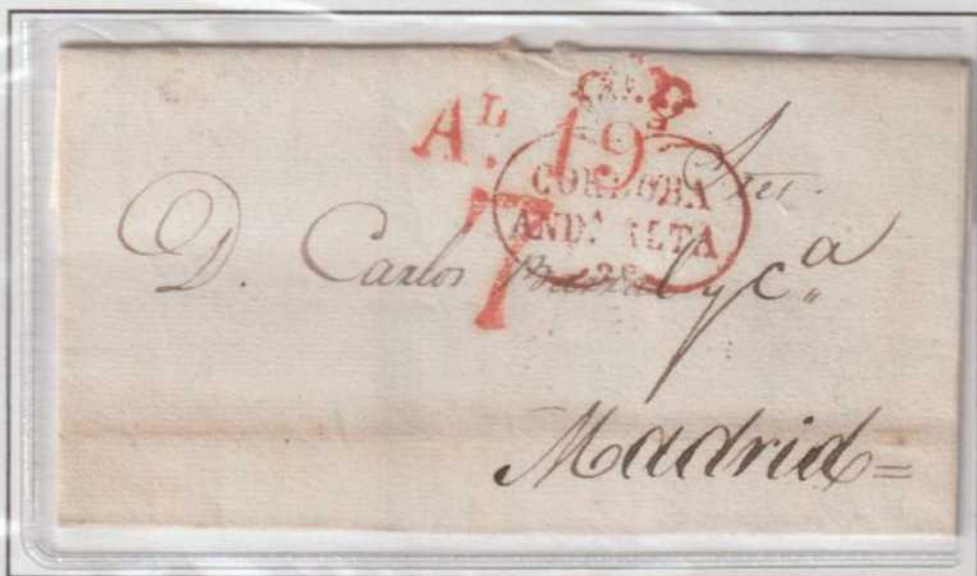 Aᴸ. 19
7
CORDOBA
ANDᴬ ALTA
Sres.
D. Carlos y Cᵃ
Madrid=